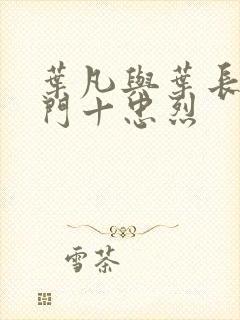 葉凡與葉長
門十忠烈
雪茶